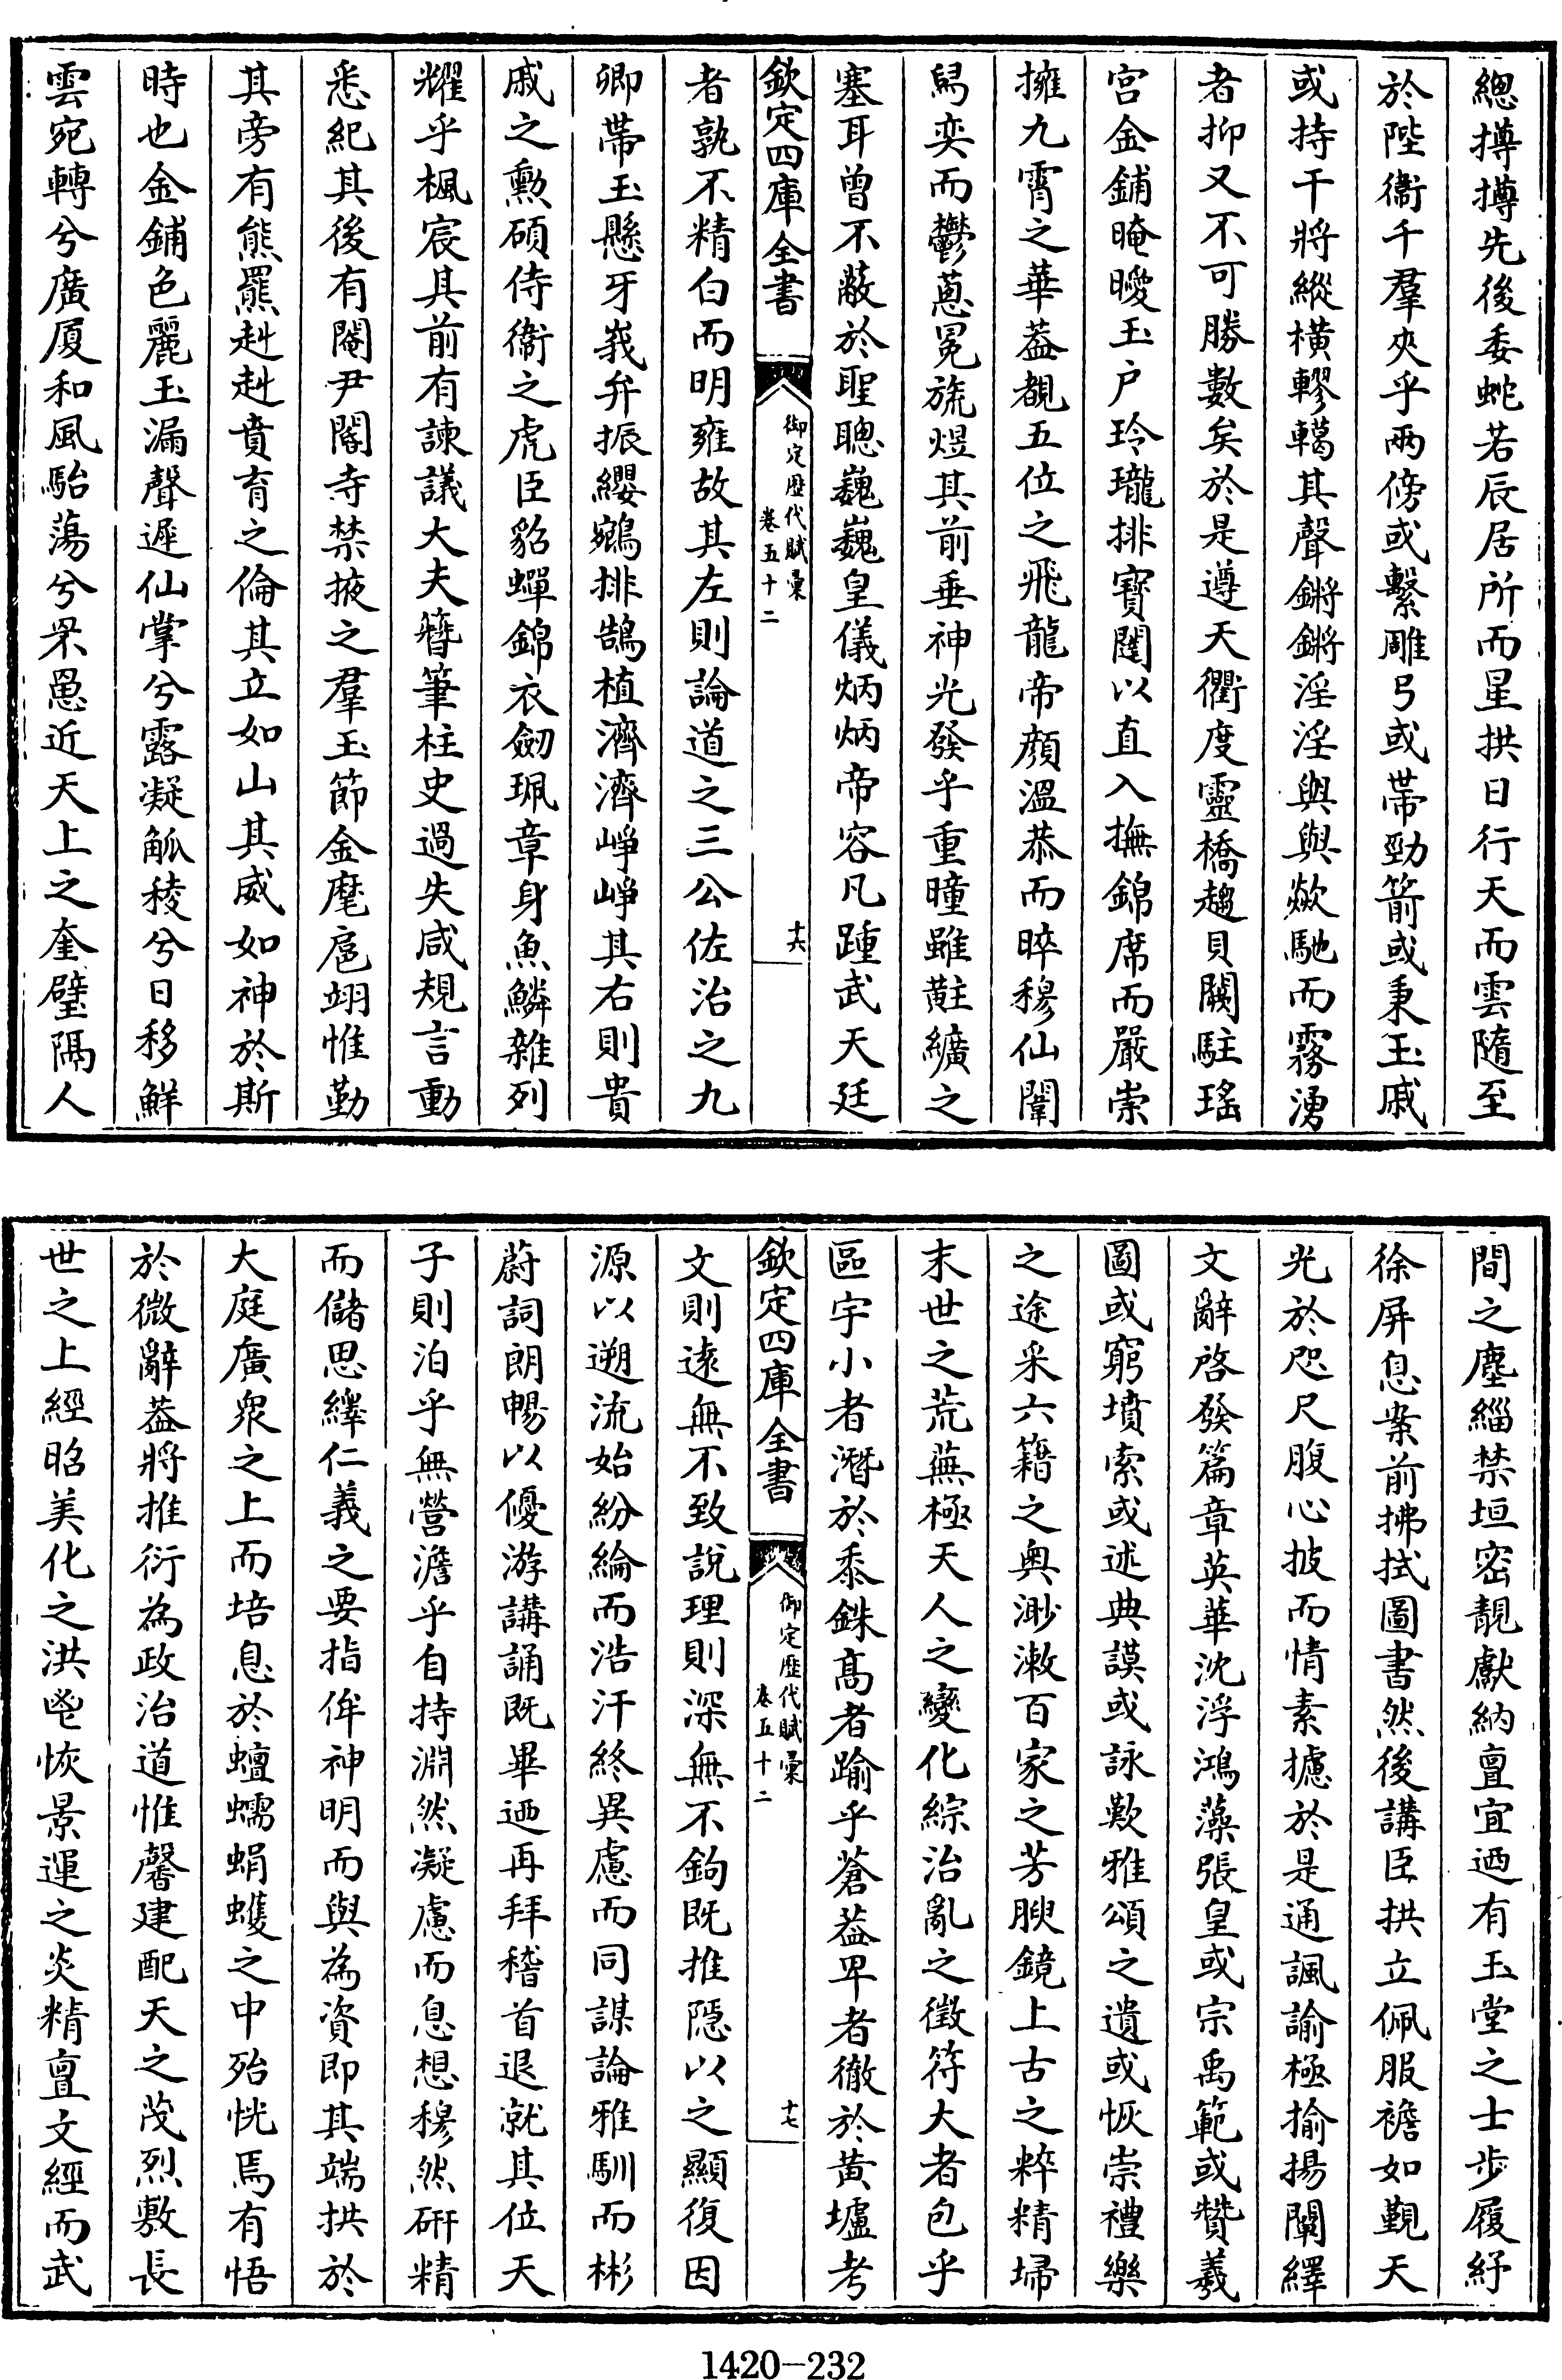 總摶摶先後委蛇若辰居所而星拱日行天而雲隨至
於陛衞千羣夾乎兩傍或繫雕弓或帶勁箭或秉玉戚
或持干將縱橫轇轕其聲鏘鏘淫淫與與歘馳而霧湧
者抑又不可勝數矣於是遵天衢度靈橋趨貝闕駐瑤
宮金鋪晻曖玉戶玲瓏排寶闥以直入撫錦席而嚴崇
擁九霄之華葢覩五位之飛龍帝顏溫恭而睟穆仙闈
舄奕而鬱蔥冕旒煜其前垂神光發乎重瞳雖黈纊之
塞耳曾不蔽於聖聰巍巍皇儀炳炳帝容凡踵武天廷
欽定四庫全書
御定歷代賦彙
卷五十二
十六
者孰不精白而明雍故其左則論道之三公佐治之九
卿帶玉懸牙峩弁振纓鵷排鵠植濟濟崢崢其右則貴
戚之勲碩侍衞之虎臣貂蟬錦衣劒珮章身魚鱗雜列
耀乎楓宸其前有諫議大夫簪筆柱史過失咸規言動
悉紀其後有閹尹閽寺禁掖之羣玉節金麾扈翊惟勤
其旁有熊羆赳赳賁育之倫其立如山其威如神於斯
時也金鋪色麗玉漏聲遲仙掌兮露凝觚稜兮日移鮮
雲宛轉兮廣厦和風駘蕩兮罘罳近天上之奎璧隔人
間之塵緇禁垣密靚獻納亶宜迺有玉堂之士步履紆
徐屏息案前拂拭圖書然後講臣拱立佩服襜如覲天
光於咫尺腹心披而情素攄於是通諷諭極揄揚闡繹
文辭啓發篇章英華沈浮鴻藻張皇或宗禹範或贊羲
圖或窮墳索或述典謨或詠歎雅頌之遺或恢崇禮樂
之途采六籍之奥渺漱百家之芳腴鏡上古之粹精埽
末世之荒蕪極天人之變化綜治亂之徵符大者包乎
區宇小者潛於黍銖高者踰乎蒼葢卑者徹於黃壚考
欽定四庫全書
御定歷代賦彙
卷五十二
十七
文則遠無不致說理則深無不鉤既推隱以之顯復因
源以遡流始紛綸而浩汗終異慮而同謀論雅馴而彬
蔚詞朗暢以優游講誦既畢迺再拜稽首退就其位天
子則泊乎無營澹乎自持淵然凝慮而息想穆然研精
而儲思繹仁義之要指侔神明而與為資即其端拱於
大庭廣衆之上而培息於蠉蠕蜎蠖之中殆恍焉有悟
於微辭葢將推衍為政治道惟馨建配天之茂烈敷長
世之上經昭美化之洪鬯恢景運之炎精亶文經而武
1420-232